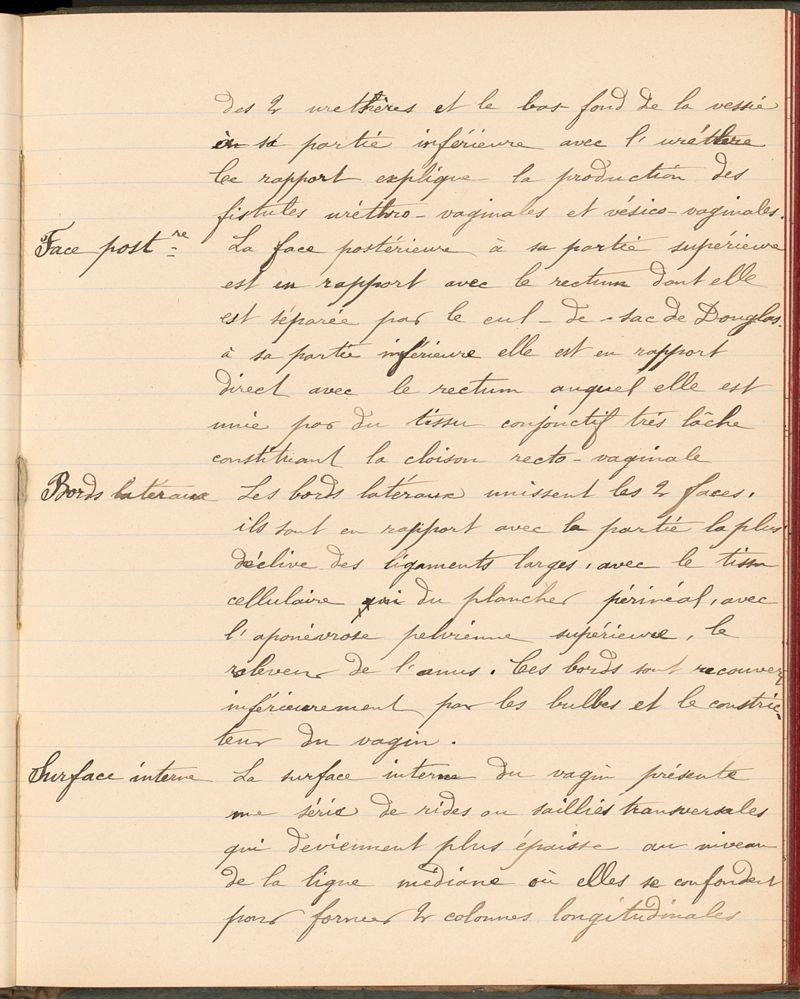 des 2 urethères et le bas-fond de la vessie
en sa partie inférieure avec l'uréthre
Ce rapport explique la production des
fistules uréthro-vaginales et vésico-vaginales.
Face post re La face postérieure à sa partie supérieure
est en rapport avec le rectum dont elle
est séparée par le cul-de-sac de Douglas.
à sa partie inférieure elle est en rapport
direct avec le rectum auquel elle est
unie par du tissu conjonctif très lâche
constituant la cloison recto-vaginale
Bords latéraux Les bords latéraux unissent les 2 faces.
ils sont en rapport avec la partie la plus
déclive des ligaments larges, avec le tissu
cellulaire qui du plancher périnéal, avec
l'aponévrose pelvienne supérieure, le
releveur de l'anus. Ces bords sont recouverts
inférieurement par les bulbes et le constric-
teur du vagin.
Surface interne La surface interne du vagin présente
une série de rides ou saillies transversales
qui deviennent plus épaisse au niveau
de la ligne médiane où elles se confondent
pour former 2 colonnes longitudinales